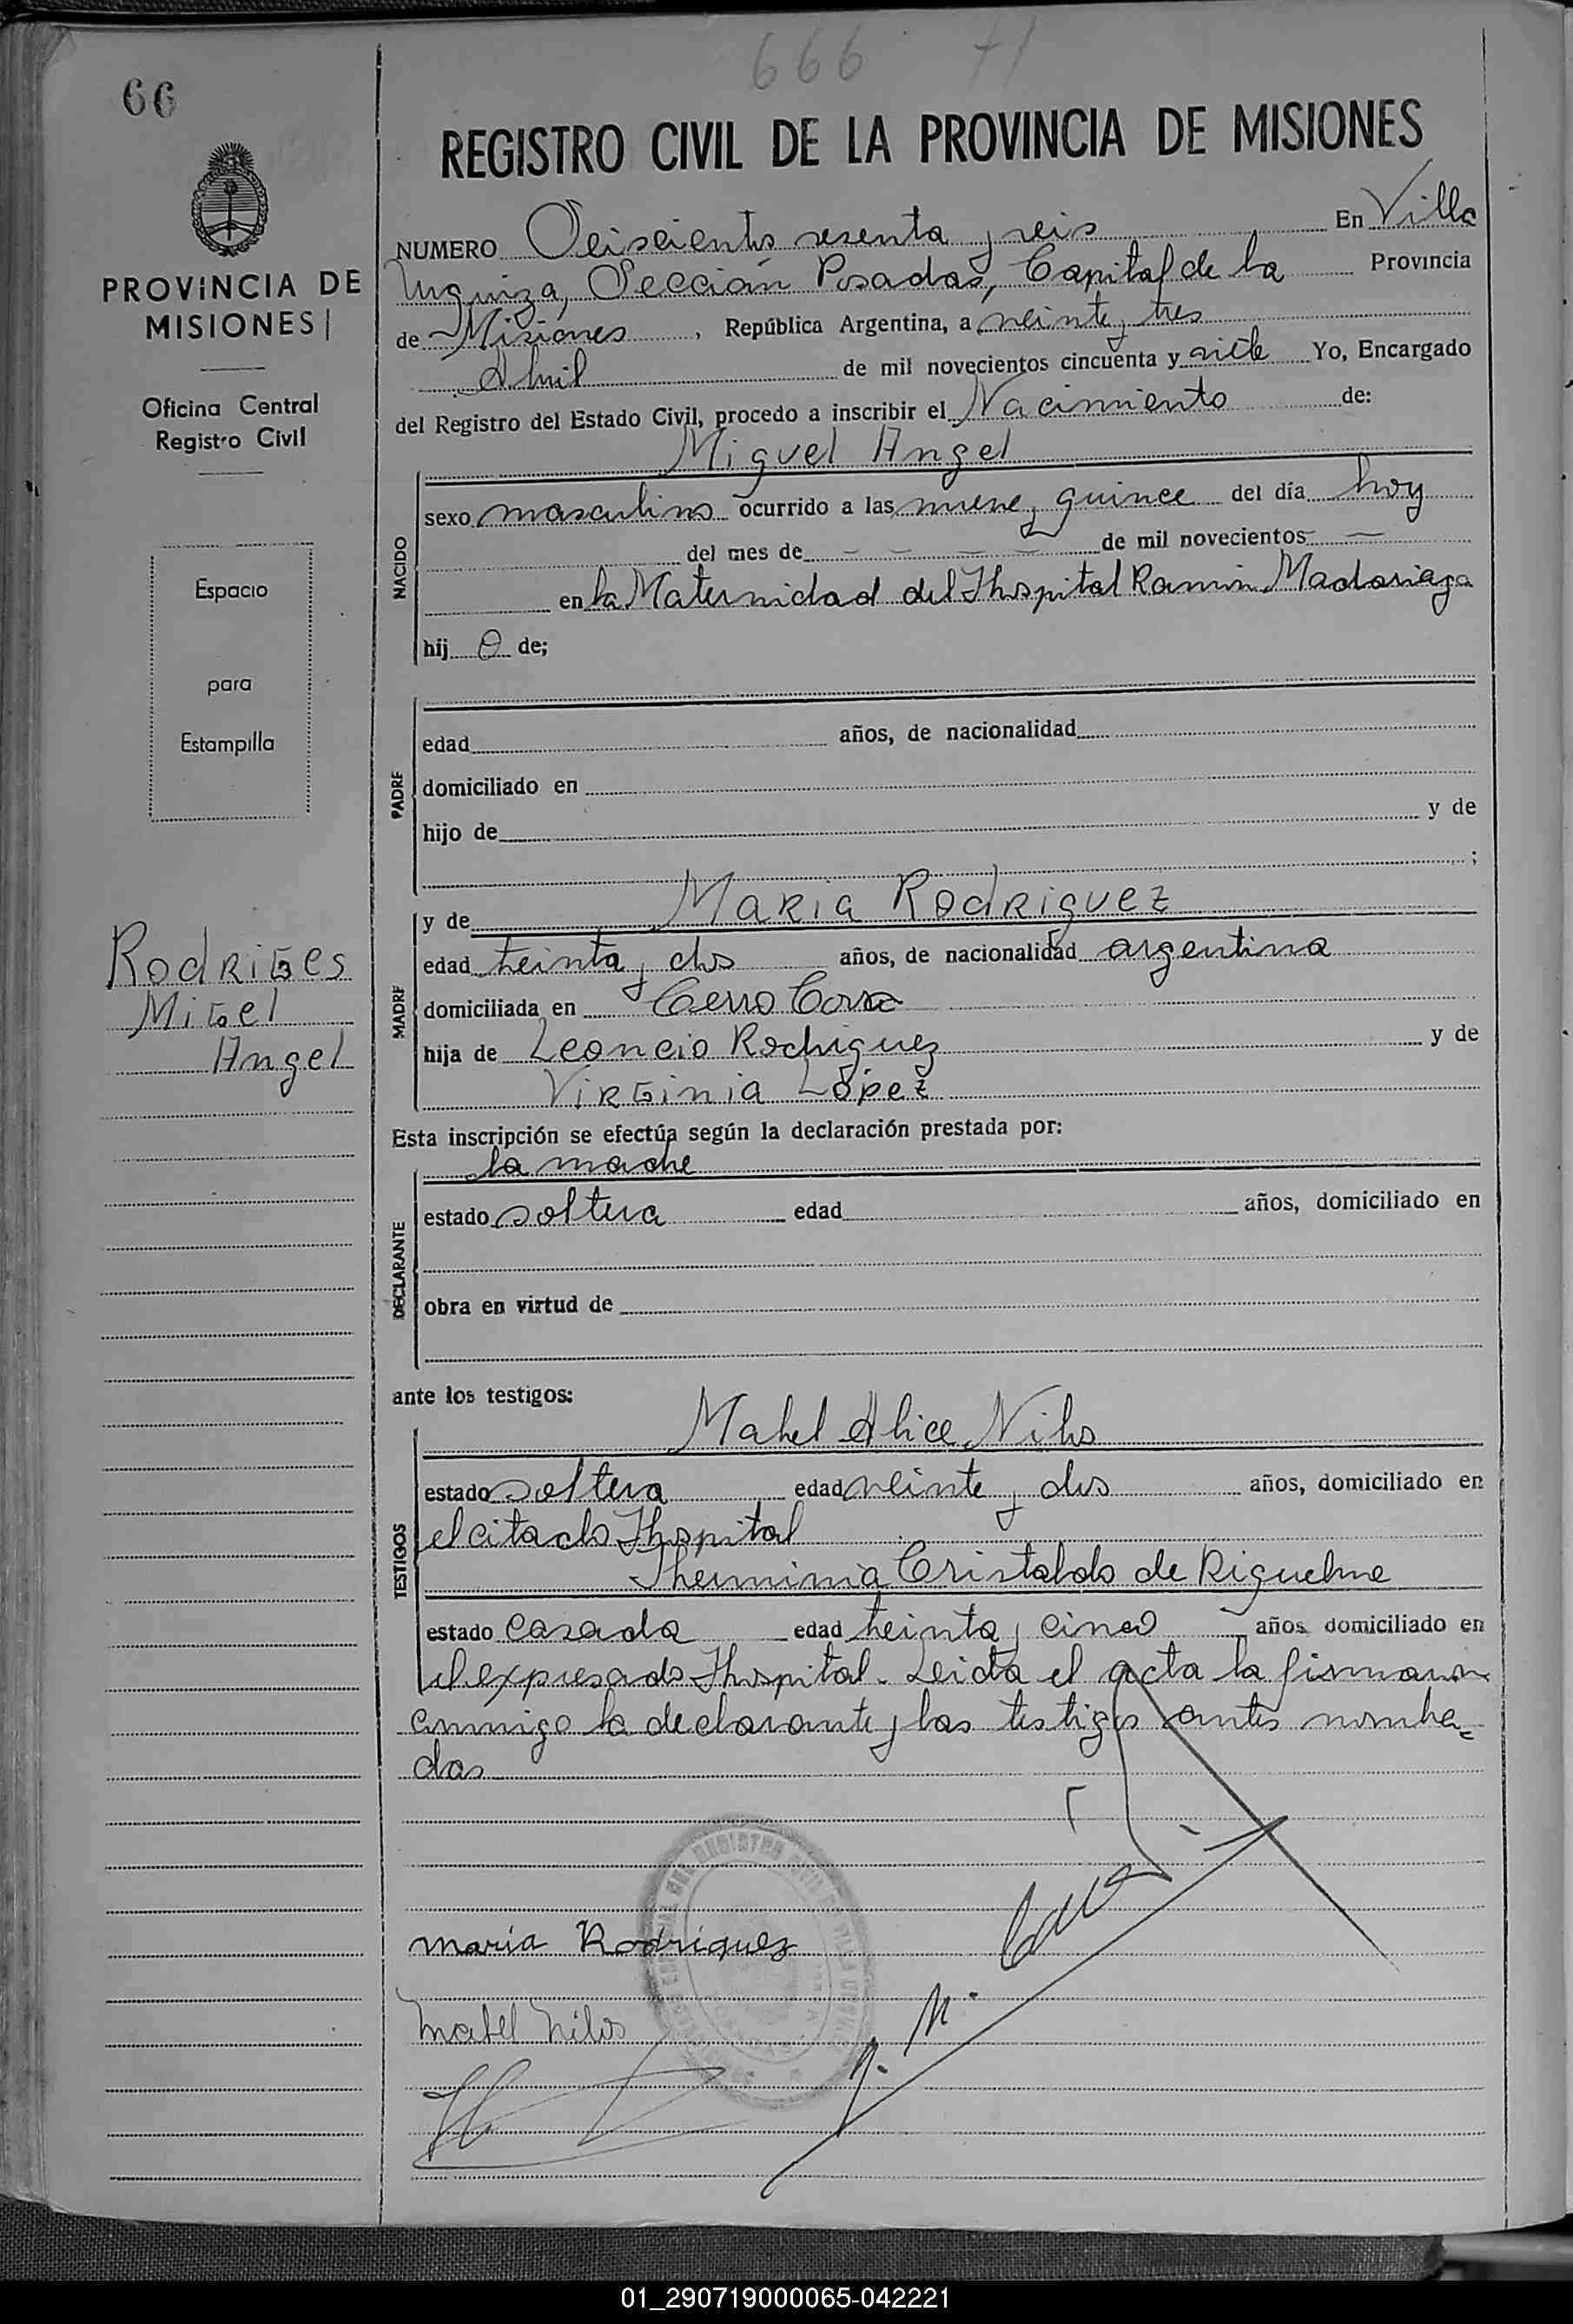 666 71
66
REGISTRO CIVIL DE LA PROVINCIA DE MISIONES
PROVINCIA DE
MISIONES
Oficina Central
Registro Civil
Espacio
para
Estampilla
NUMERO Seiscientos sesenta y seis En Villa
Urquiza, Sección Posadas, Capital de la Provincia
de Misiones, República Argentina, a veinte y tres
Abril de mil novecientos cincuenta y siete Yo, Encargado
del Registro del Estado Civil, procedo a inscribir el Nacimiento de:
Miguel Angel
NACIDO
sexo masculino ocurrido a las nueve y quince del día hoy
del mes de — — — — de mil novecientos —
en la Maternidad del Hospital Ramón Madariaga
hij o de;
PADRE
edad años, de nacionalidad
domiciliado en
hijo de y de
;
MADRE
y de Maria Rodriguez
edad treinta y dos años, de nacionalidad argentina
domiciliada en Cerro Cora
hija de Leoncio Rodriguez y de
Virginia Lopez
Rodriges
Migel
Angel
Esta inscripción se efectúa según la declaración prestada por:
la madre
DECLARANTE
estado soltera edad años, domiciliado en
obra en virtud de
ante los testigos:
Mabel Alice Nilos
TESTIGOS
estado soltera edad veinte y dos años, domiciliado en
el citado Hospital
Herminia Cristaldo de Riquelme
estado casada edad treinta y cinco años domiciliado en
el expresado Hospital. Leida el acta la firmaron
conmigo la declarante y las testigos antes nombra=
das
maria Rodriguez
Mabel Nilos
01_290719000065-042221